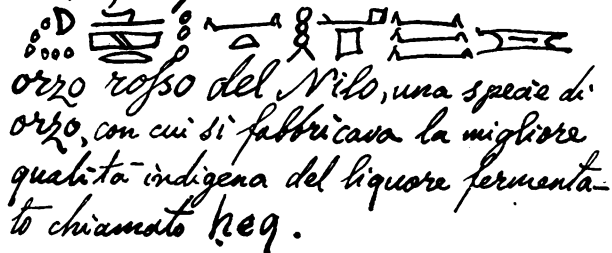 orzo rosso del Nilo, una specie di
orzo, con cui si fabbricava la migliore
qualità indigena del liquore fermenta-
to chiamato ḥeq.